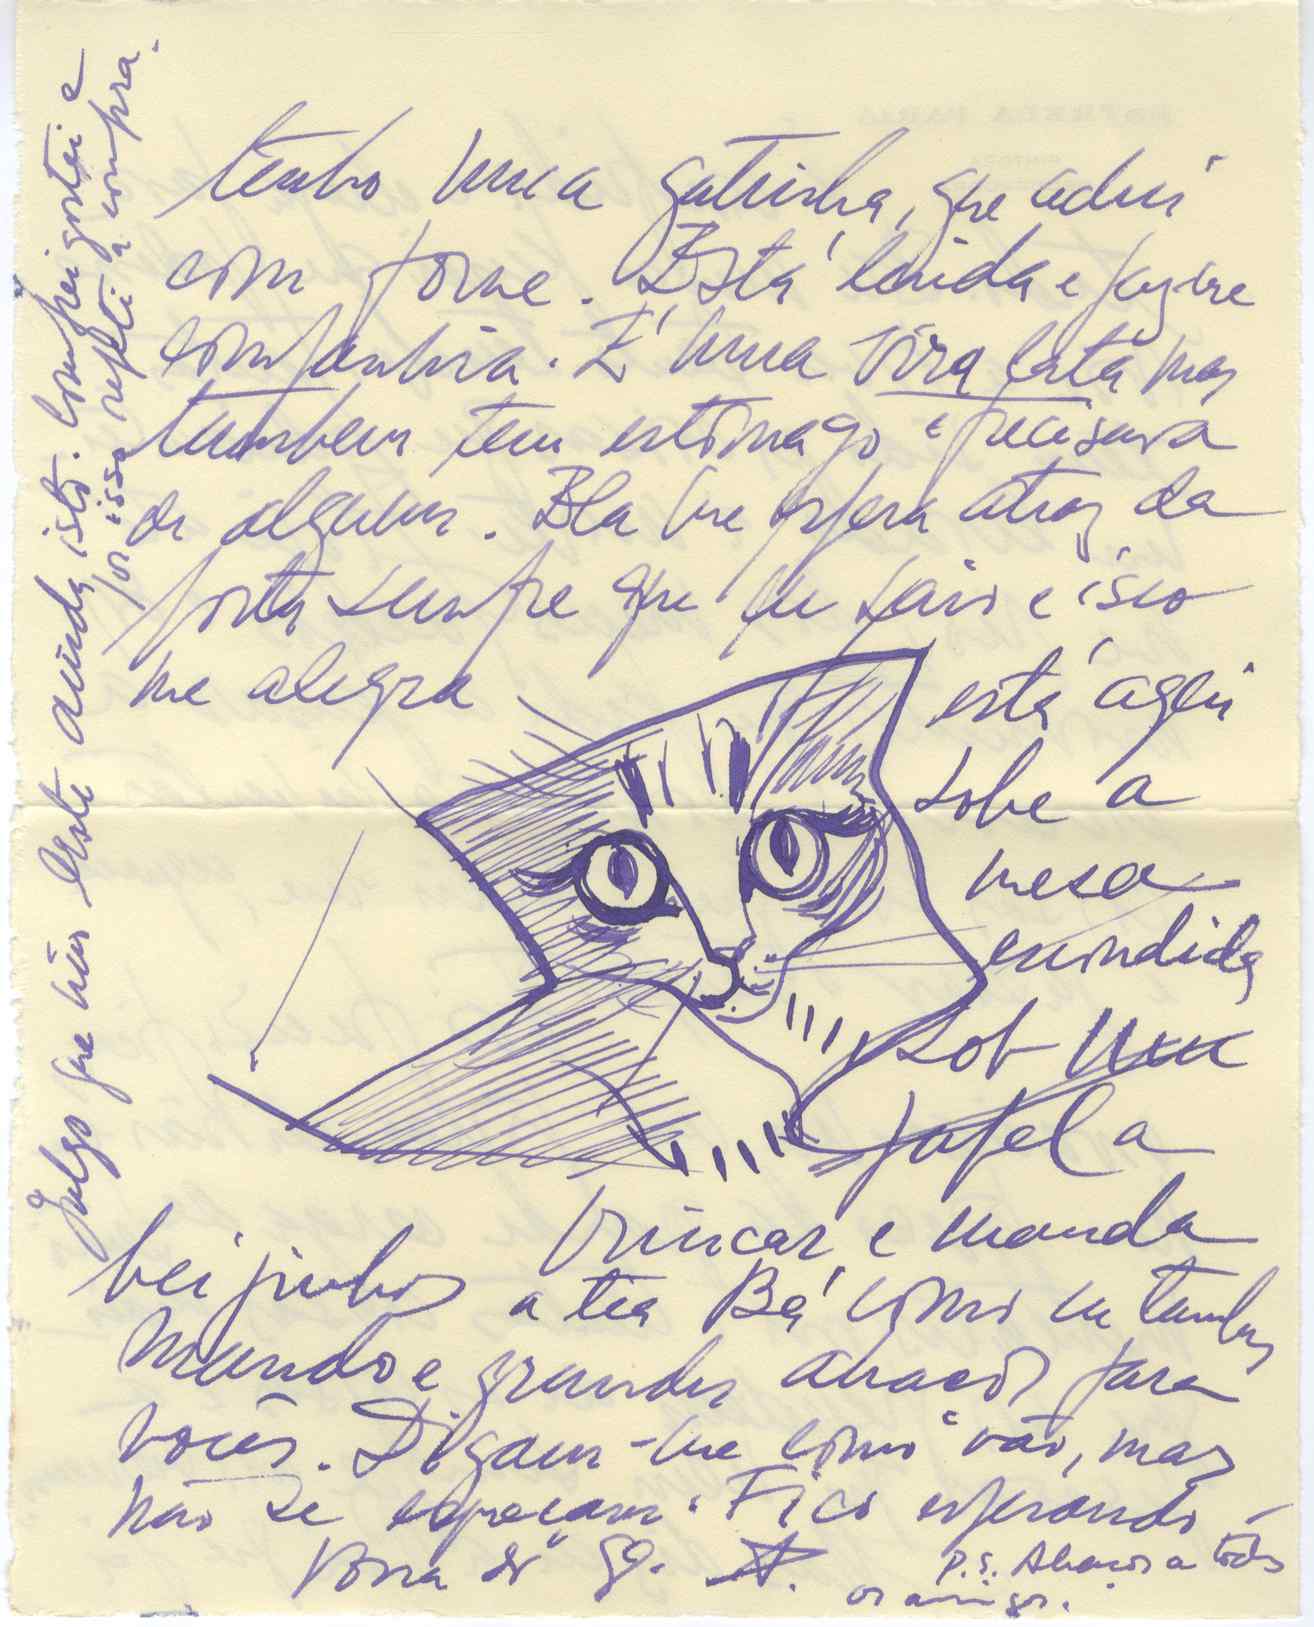 tenho uma gatinha, que achei
com fome. Está linda e faz-me
companhia. É uma vira lata mas
tambem tem estômago e precisava
de alguem. Ela me espera atraz da
porta sempre que eu saio e isso
me alegra
está aqui
sobe a
mesa
escondida
sob um
papel a
brincar e manda
beijinhos a tia Bá como eu tambem
mando e grandes abraços para
vocês. Digam-me como vão, mas
não se esqueçam. Fico esperando
Vossa
P.S. Abraços a todos
os amigos.
Julgo que não leste ainda isto. Comprei gostei e
por isso repeti a compra.